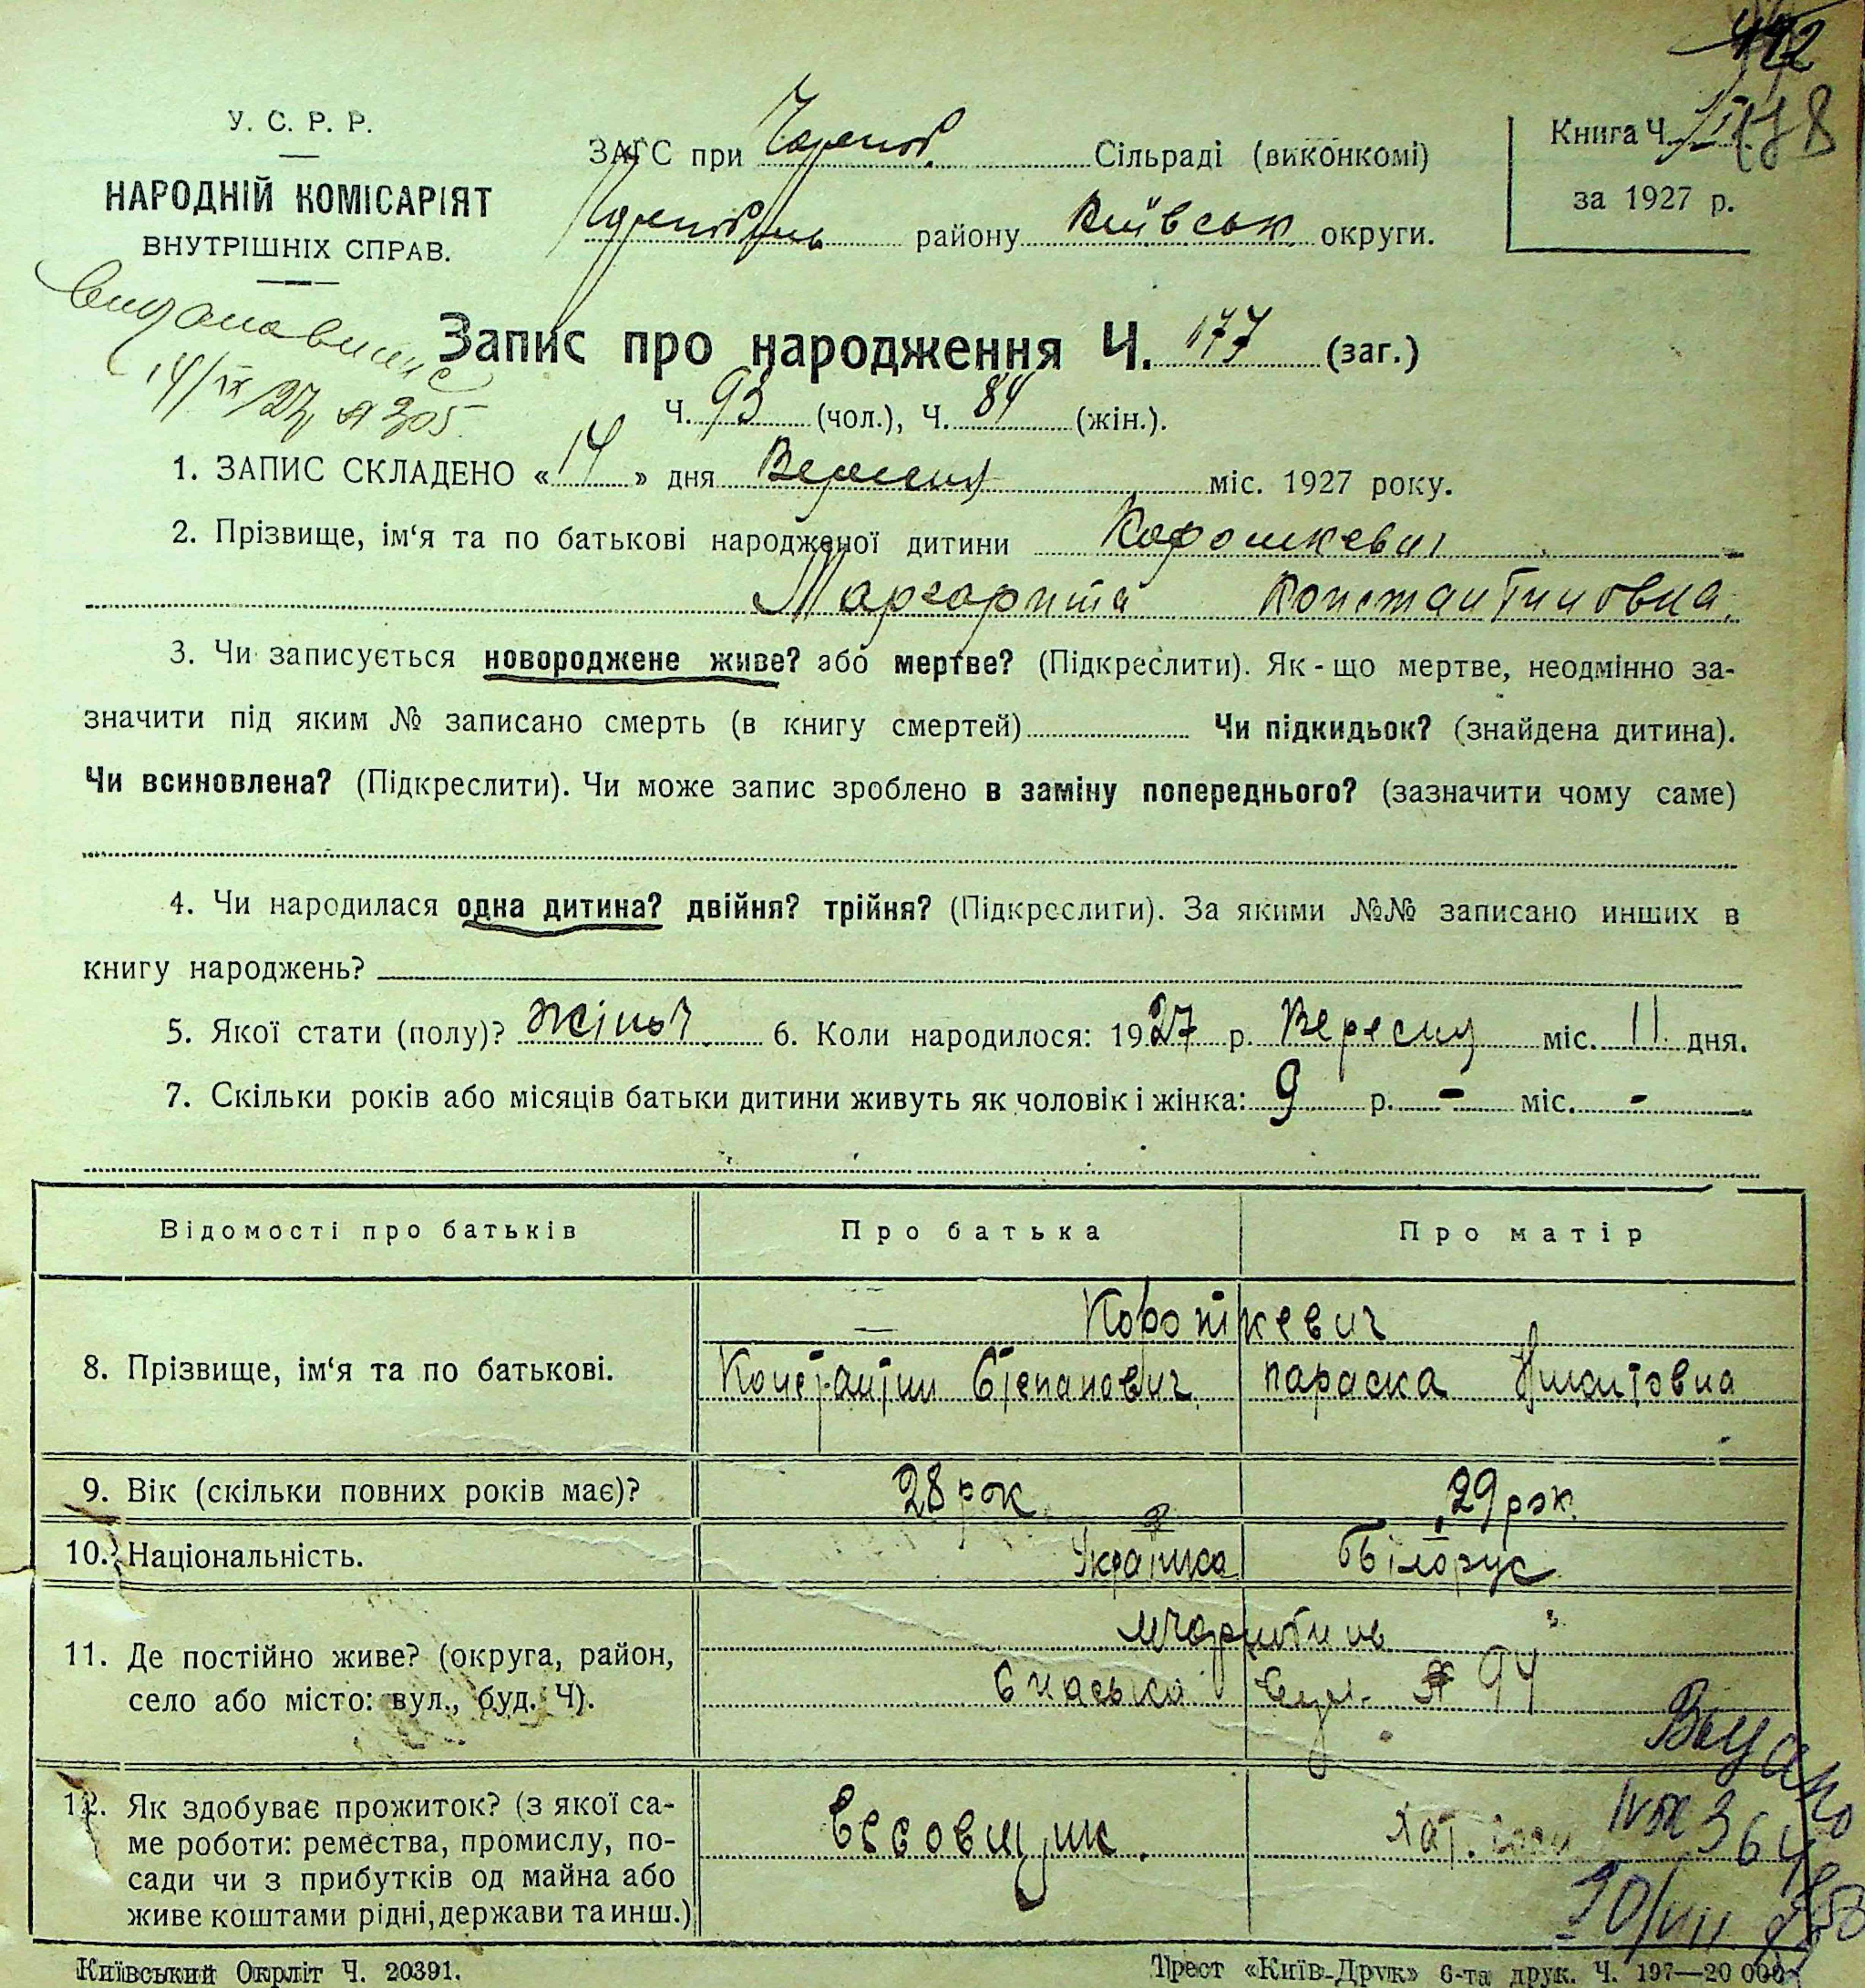 У. С. Р. Р.
НАРОДНІЙ КОМІСАРІЯТ
ВНУТРІШНІХ СПРАВ.
ЗАГС при Сільраді (виконкомі)
району Київськ округи.
Книга Ч.
за 1927 р.
Запис про народження Ч. 177 (заг.)
14/IX/27 № 305.
Ч. 93 (чол.), Ч. 84 (жін.).
1. ЗАПИС СКЛАДЕНО « 14 » дня Вересня міс. 1927 року.
2. Прізвище, ім‘я та по батькові народженої дитини
Маргарита Константиновна.
3. Чи записується новороджене живе? або мертве? (Підкреслити). Як-що мертве, неодмінно за-
значити під яким № записано смерть (в книгу смертей) Чи підкидьок? (знайдена дитина).
Чи всиновлена? (Підкреслити). Чи може запис зроблено в заміну попереднього? (зазначити чому саме)
4. Чи народилася одна дитина? двійня? трійня? (Підкреслити). За якими №№ записано инших в
книгу народжень?
5. Якої стати (полу)? Жіноч. 6. Коли народилося: 1927 р. Вересня міс. 11 дня.
7. Скільки років або місяців батьки дитини живуть як чоловік і жінка: 9 р. - міс. -
Відомості про батьків Про батька Про матір
Короткевич
8. Прізвище, ім‘я та по батькові. Константин Степанович Параска Никитовна
9. Вік (скільки повних років має)? 28 рок. 29 рок.
10. Національність. Українка Білорус
11. Де постійно живе? (округа, район,
село або місто: вул., буд. Ч). Спаська вул. № 94
12. Як здобуває прожиток? (з якої са-
ме роботи: ремества, промислу, по-
сади чи з прибутків од майна або
живе коштами рідні, держави та инш.)
Весовщик.
Київський Окрліт Ч. 20391.
Трест «Київ-Друк» 6-та друк. Ч. 197—20 000